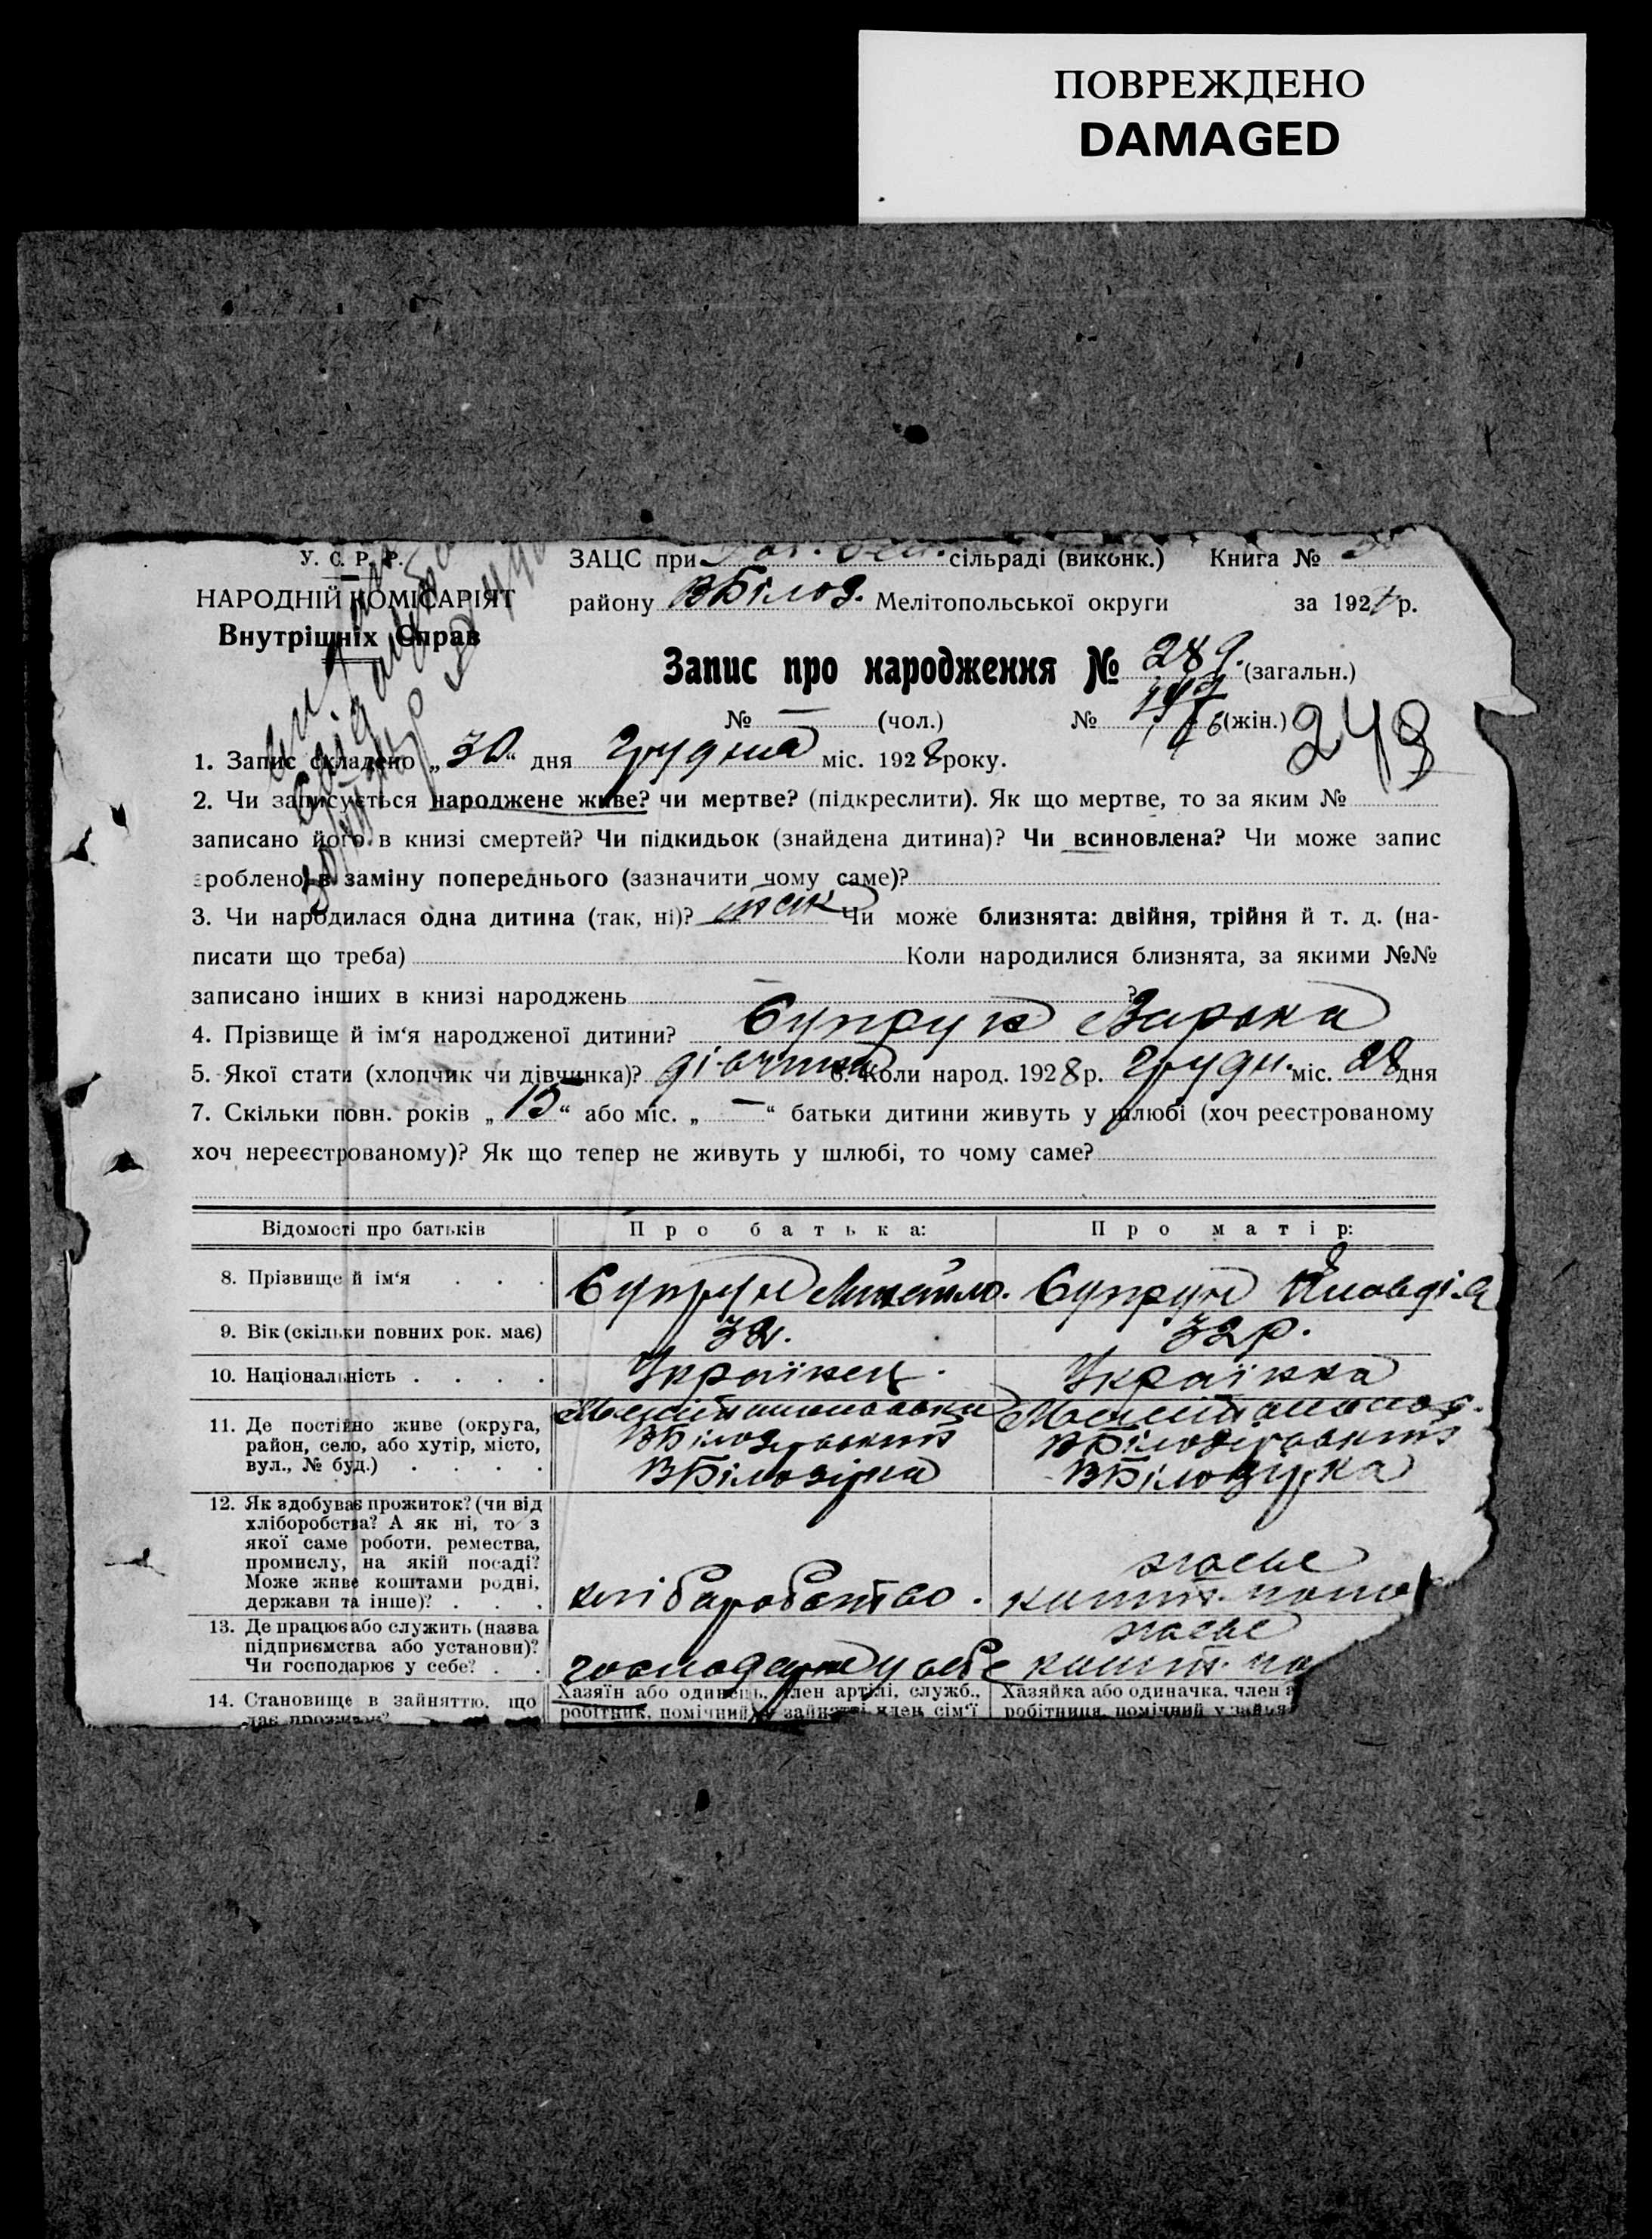 ПОВРЕЖДЕНО
DAMAGED
У. С. Р. Р.
НАРОДНІЙ КОМІСАРІЯТ
Внутрішніх Справ
ЗАЦС при сільраді (виконк.) Книга №
району ВБілоз. Мелітопольської округи за 192 р.
Запис про народження № 289. (загальн.)
№ — (чол.) № (жін.)
248
1. Запис складено „30“ дня грудня міс. 1928 року.
2. Чи записується народжене живе? чи мертве? (підкреслити). Як що мертве, то за яким №
записано його в книзі смертей? Чи підкидьок (знайдена дитина)? Чи всиновлена? Чи може запис
зроблено в заміну попереднього (зазначити чому саме)?
3. Чи народилася одна дитина (так, ні)? так Чи може близнята: двійня, трійня й т. д. (на-
писати що треба) Коли народилися близнята, за якими №№
записано інших в книзі народжень — ?
4. Прізвище й ім‘я народженої дитини? Супрун
5. Якої стати (хлопчик чи дівчинка)? дівчинка 6. Коли народ. 1928 р. грудн. міс. 28 дня
7. Скільки повн. років „15“ або міс. „—“ батьки дитини живуть у шлюбі (хоч реєстрованому
хоч нереєстрованому)? Як що тепер не живуть у шлюбі, то чому саме?
Відомості про батьків Про батька: Про матір:
8. Прізвище й ім‘я . . . Супрун Михайло. Супрун Явдія
9. Вік (скільки повних рок. має) 32р.
10. Національність . . . . Українець. Українка
11. Де постійно живе (округа,
район, село, або хутір, місто,
вул., № буд.) . . . .
ВБілозерський ВБілозерський
ВБілозірка ВБілозірка
12. Як здобуває прожиток? (чи від
хліборобства? А як ні, то з
якої саме роботи, ремества,
промислу, на якій посаді?
Може живе коштами родні,
держави та інше)? . . .
хліборобство.
13. Де працює або служить (назва
підприємства або установи)?
Чи господарює у себе? . .
господарює у себе
14. Становище в зайняттю, що
дає прожиток?
Хазяїн або одинець, член артілі, служб.,
робітник, помічний у зайнятті член сім'ї
Хазяйка або одиначка, член
робітниця, помічний у